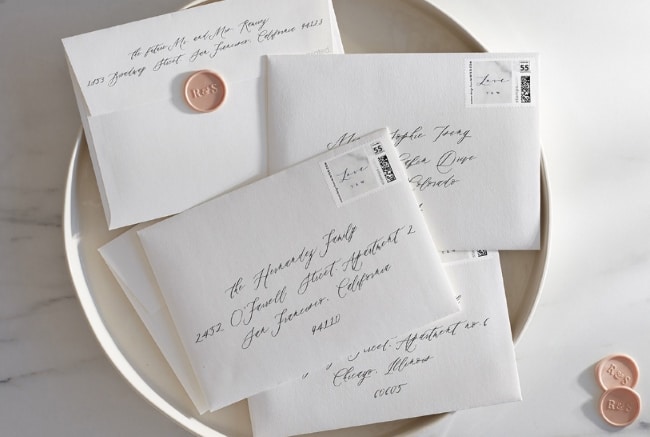 the future Mr. and Mrs. Ramsey
2853 Broadway Street San Francisco, California 94115
R&S
55
Love
55
Love
Sophie Young
Drive
Colorado
the Hernandez Family
2452 O'Farrell Street Apartment 2
San Francisco, California
94121
Street, Apartment no 6
Chicago, Illinois
60605
R&S
R&S